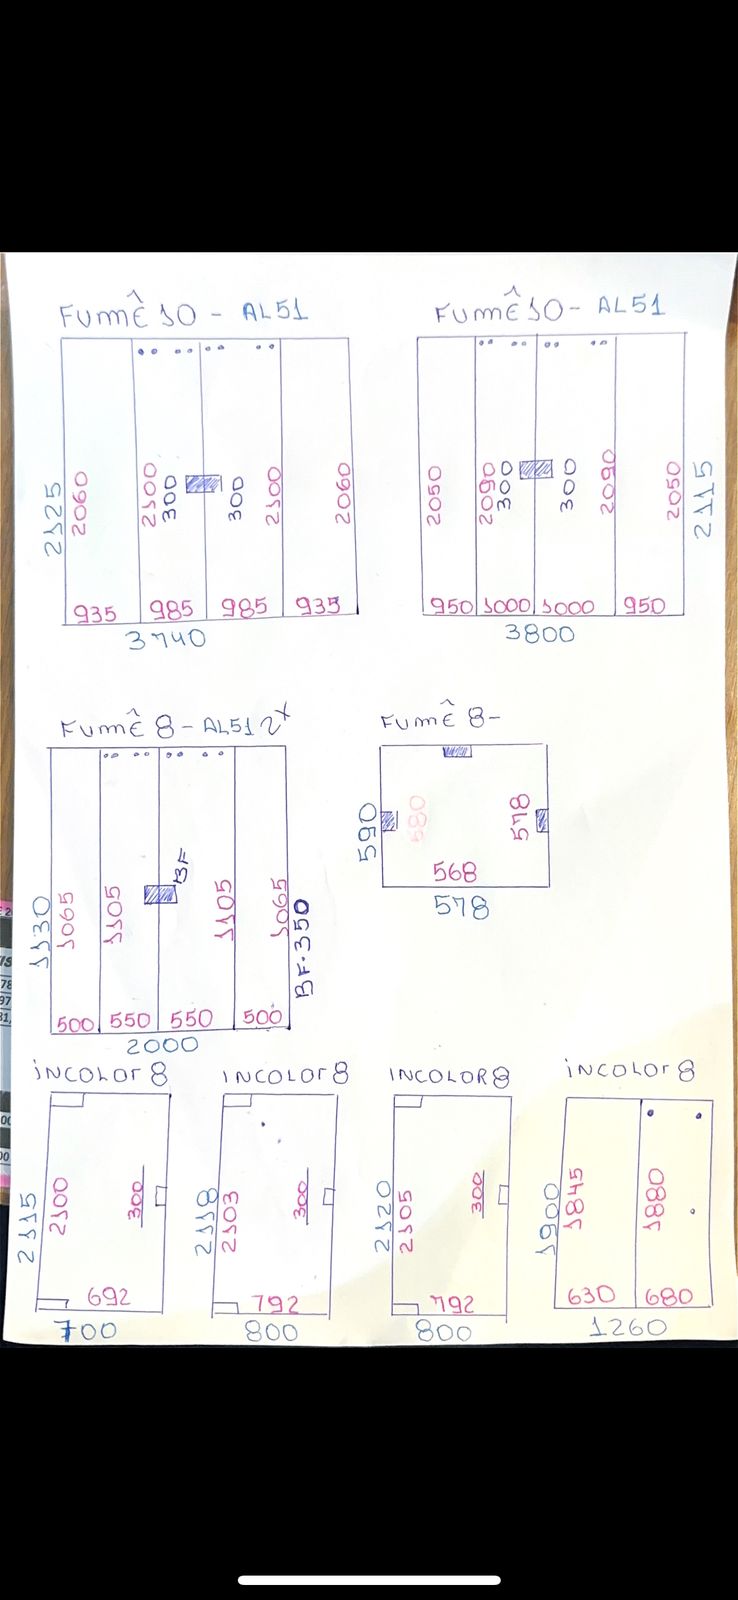 FUMÊ 10 - AL51
2125
2060
2100
300
300
2100
2060
935
985
985
935
3740
FUMÊ 10 - AL51
2050
2090
300
300
2090
2050
2115
950
1000
1000
950
3800
FUMÊ 8 - AL51 2x
1130
1065
1105
BF
1105
1065
BF.350
500
550
550
500
2000
FUMÊ 8 -
590
580
578
568
578
iNCOLOr 8
2115
2100
300
692
700
INCOLOr 8
2118
2103
300
792
800
INCOLOR 8
2120
2105
300
792
800
iNCOLOr 8
1900
1845
1880
630
680
1260